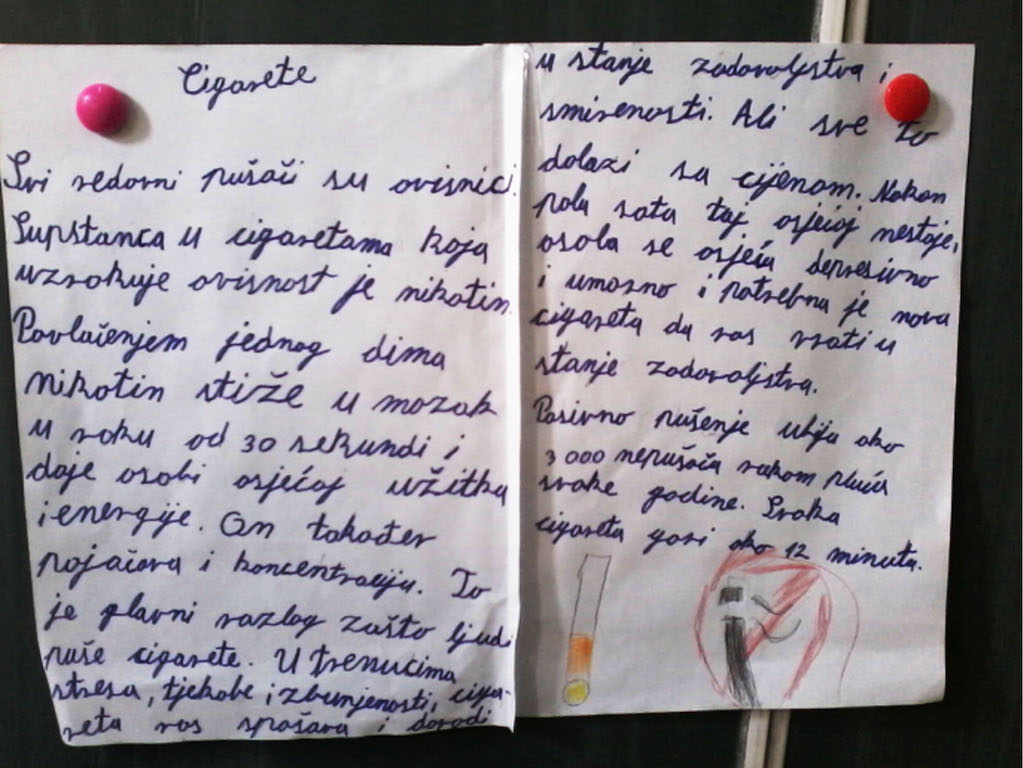 Cigarete
Svi redovni pušači su ovisnici.
Supstanca u cigaretama koja
uzrokuje ovisnost je nikotin.
Povlačenjem jednog dima
nikotin stiže u mozak
u roku od 30 sekundi i
daje osobi osjećaj užitka
i energije. On također
pojačava i koncentraciju. To
je glavni razlog zašto ljudi
puše cigarete. U trenucima
stresa, tjekobe i zbunjenosti, ciga-
reta vas spašava i dovodi
u stanje zadovoljstva i
smirenosti. Ali sve to
dolazi sa cijenom. Nakon
pola sata taj osjećaj nestaje,
osoba se osjeća depresivno
i umorno i potrebna je nova
cigareta da vas vrati u
stanje zadovoljstva.
Pasivno pušenje ubija oko
3 000 nepušača rakom pluća
svake godine. Svaka
cigareta gori oko 12 minuta.